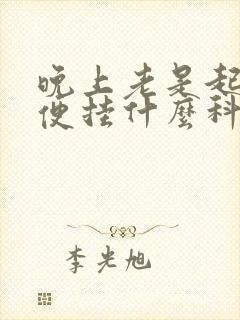 晚上老是起
便挂什麼科
李光旭